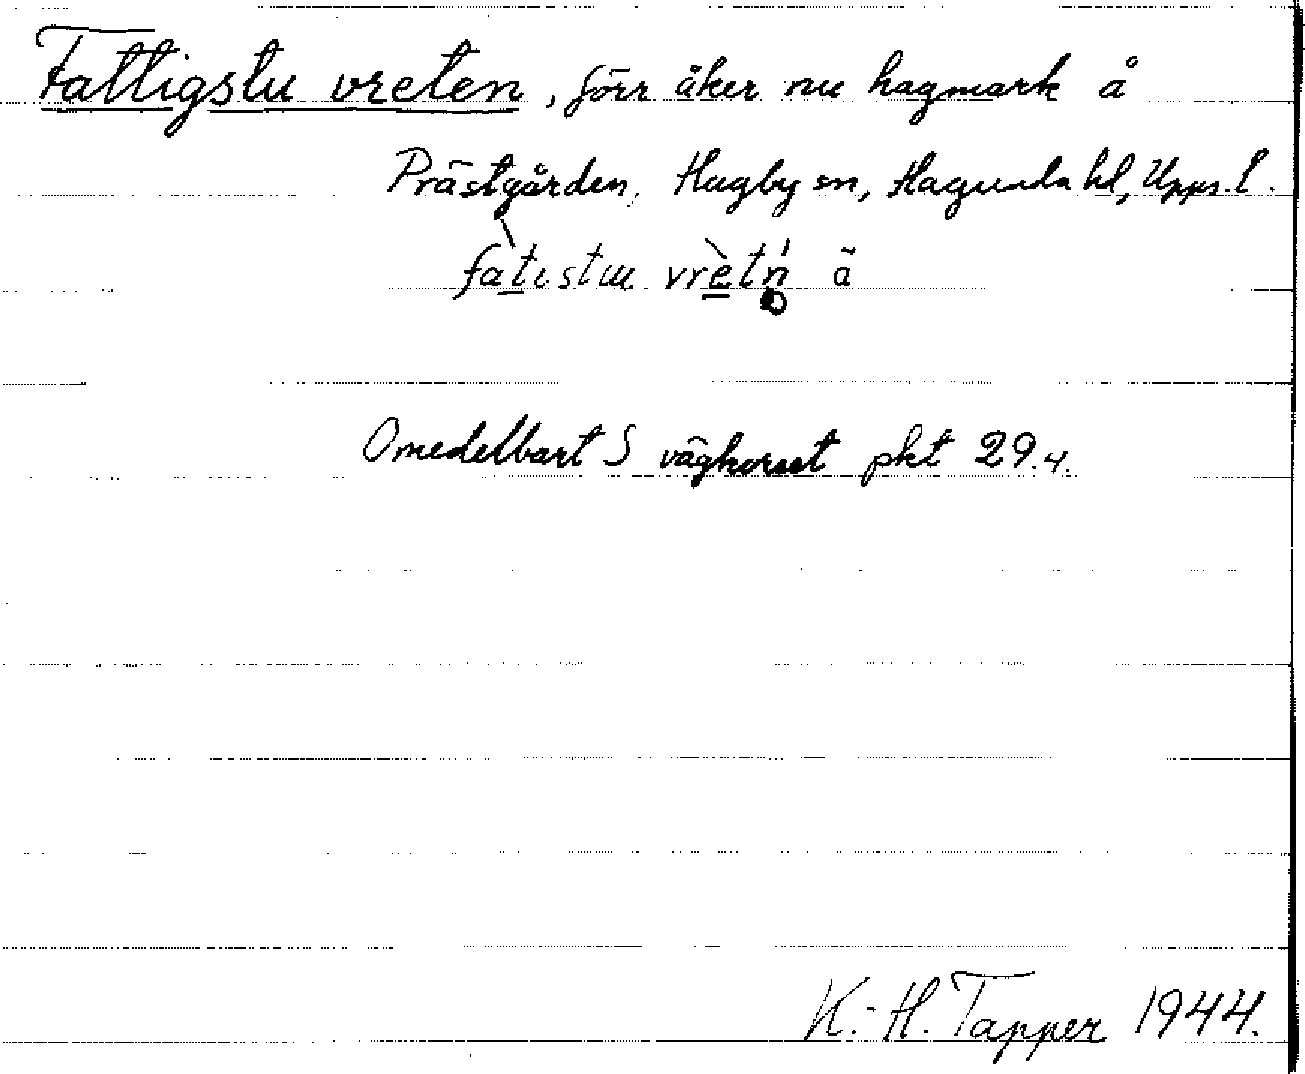 Fattigstu vreten, förr åker nu hagmark å
Prästgården, Hagby sn, Hagunda hd, Upps. l.
fàtɩstuu vrètń̥ ä
Omedelbart S vägkorset pkt 29.4.
K.-H. Tapper 1944.